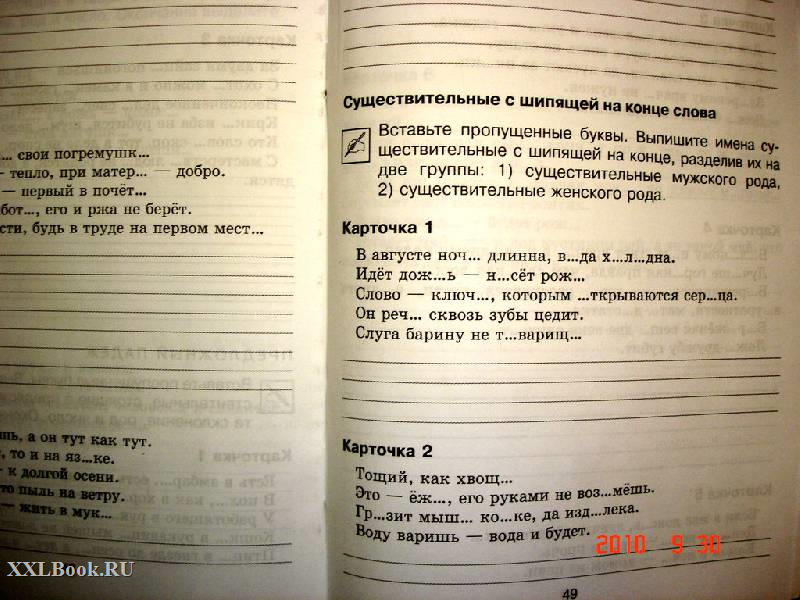 ... свои погремушк...
— тепло, при матер... — добро.
— первый в почёт...
бот..., его и ржа не берёт.
сти, будь в труде на первом мест...
шь, а он тут как тут.
, то и на яз...ке.
к долгой осени.
то пыль на ветру.
— жить в мук...
Существительные с шипящей на конце слова
Вставьте пропущенные буквы. Выпишите имена су-
ществительные с шипящей на конце, разделив их на
две группы: 1) существительные мужского рода,
2) существительные женского рода.
Карточка 1
В августе ноч... длинна, в...да х...л...дна.
Идёт дож...ь — н...сёт рож...
Слово — ключ..., которым ...ткрываются сер...ца.
Он реч... сквозь зубы цедит.
Слуга барину не т...варищ...
Карточка 2
Тощий, как хвощ...
Это — ёж..., его руками не воз...мёшь.
Гр...зит мыш... ко...ке, да изд...лека.
Воду варишь — вода и будет.
2010 9 30
49
XXLBook.RU